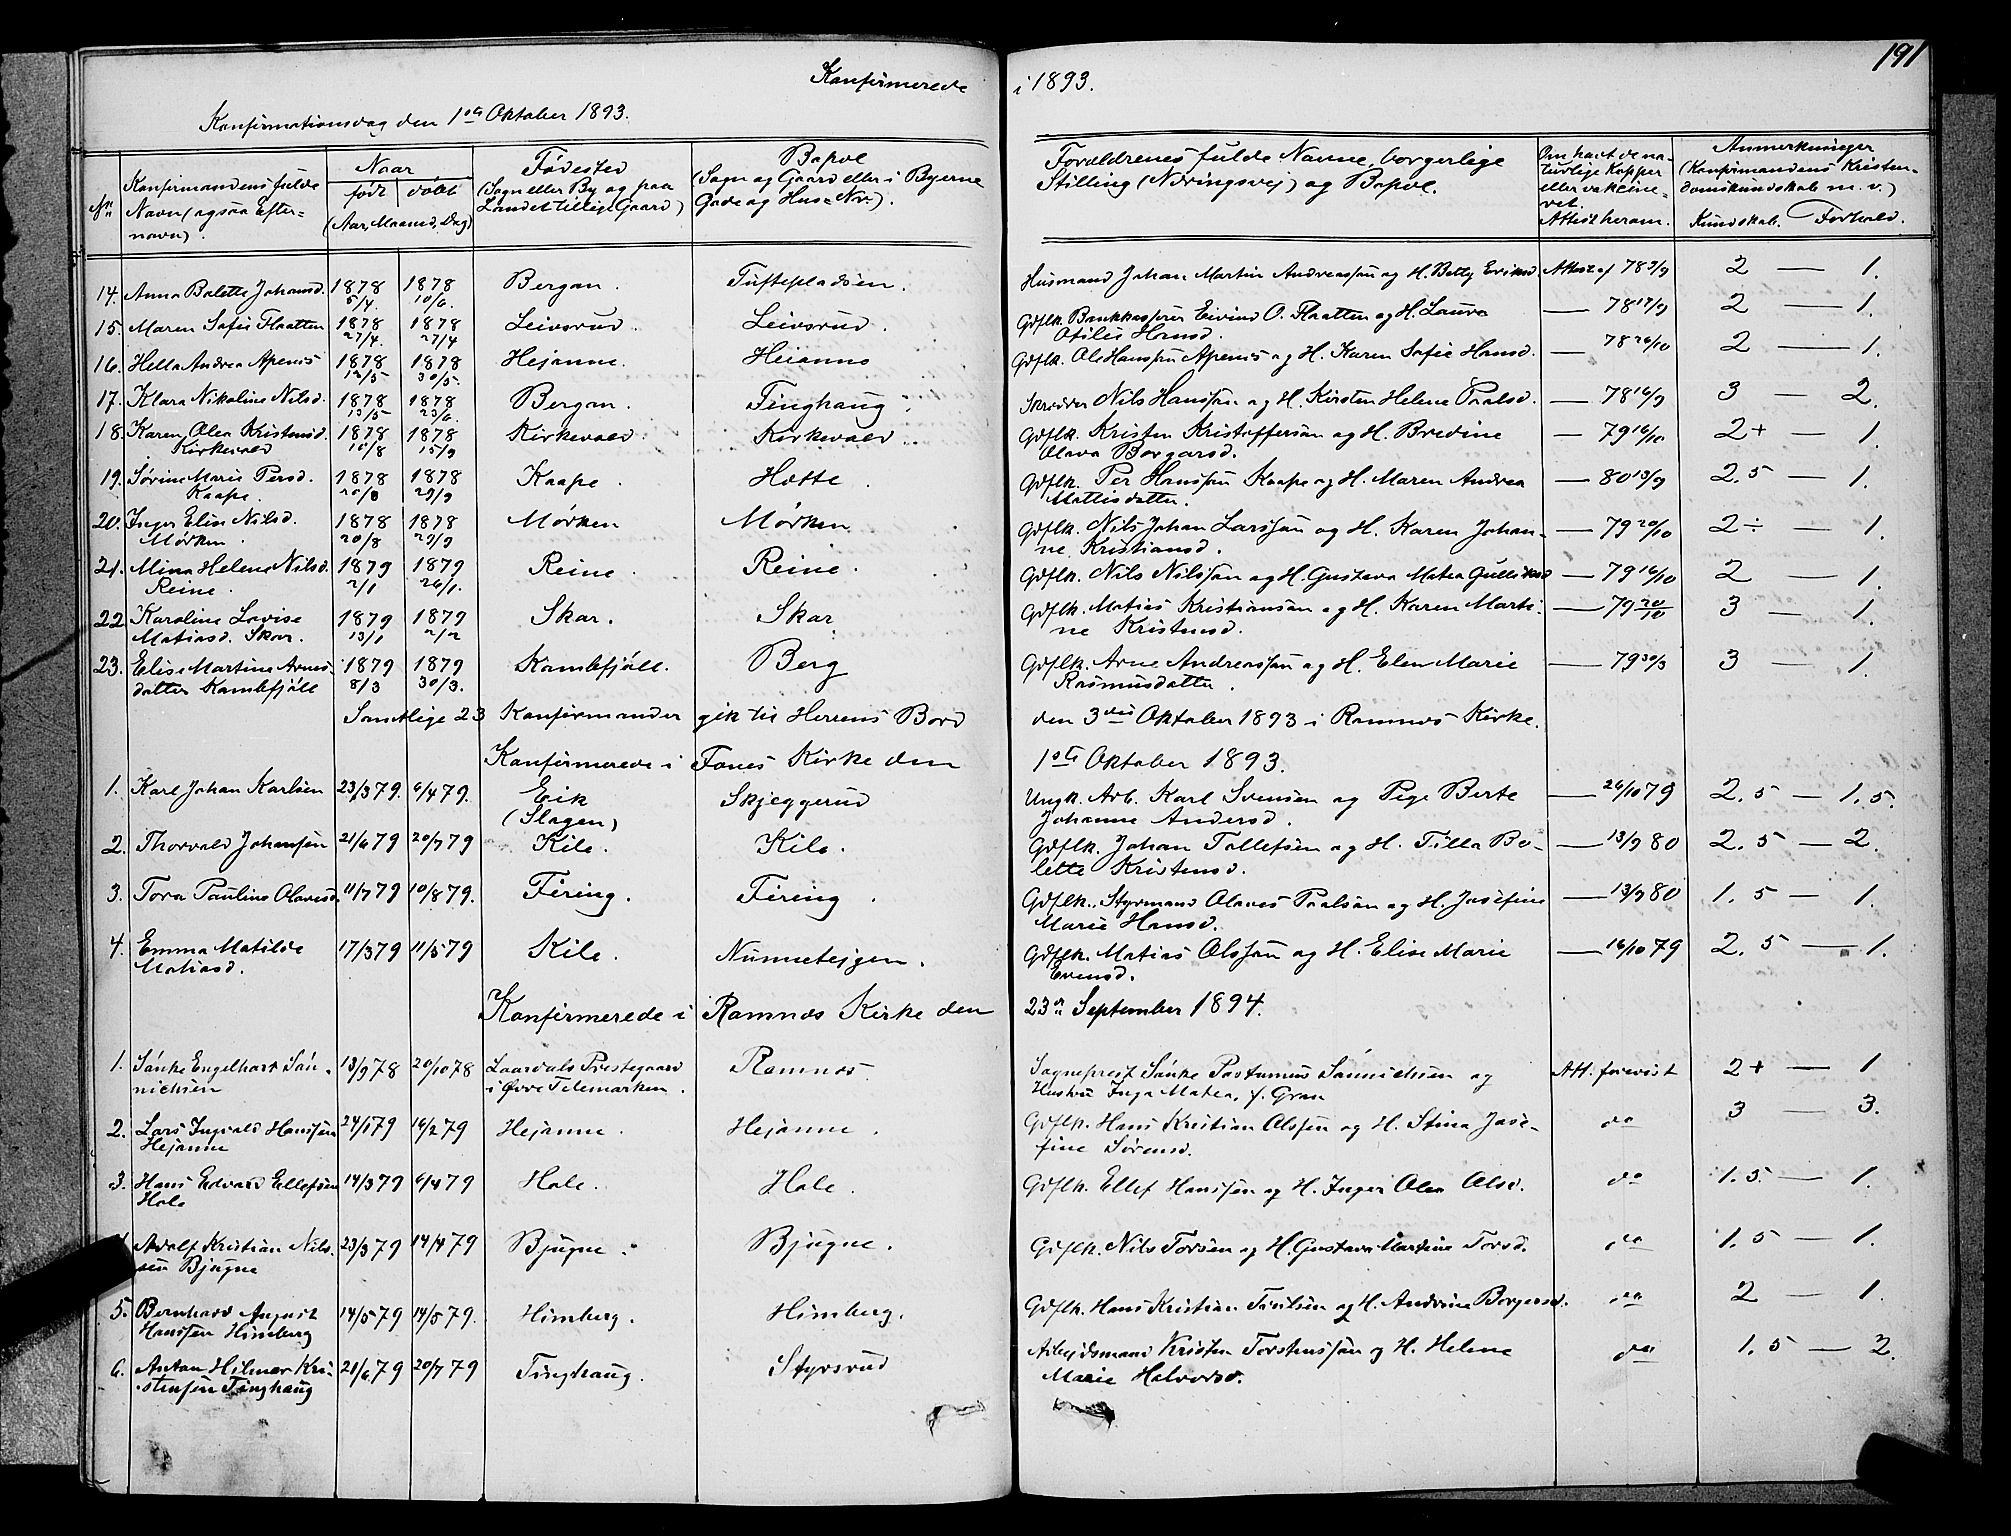 191
Konfirmerede i 1893.
Konfirmationsdag den 1ste Oktober 1893.
No. Konfirmandens fulde Navn (ogsaa Efternavn). Naar født døbt (Aar, Maaned, Dag) Fødested (Sogn eller By og paa Landet tillige Gaard) Bopæl (Sogn og Gaard eller i Byerne Gade og Hus-Nr.). Forældrenes fulde Navne, borgerlige Stilling (Næringsvej) og Bopæl. Om havt de naturlige Kopper eller vakcineret. Attest herom. Anmerkninger (Konfirmandens Kristendomskundskab m. v.) Kundskab. Forhold.
14. Anna Bolette Johansd. 1878 5/4. 1878 10/6. Bergan. Tuftepladsen. Husmand Johan Martin Andreassøn og H. Betty Eriksd. Attest af 78 3/9 2 — 1.
15. Maren Sofie Flaatten 1878 27/4. 1878 27/4 Leivsrud. Leivsrud. Gdflk. Bankkasserer Eivind O. Flaatten og H. Laura — 78 17/9 2 — 1.
Otilie Hansd.
16. Hella Andrea Apenæs 1878 12/5 1878 30/5. Hejanne. Heianno Gdflk. Ole Hanssøn Apenæs og H. Karen Sofie Hansd. — 78 26/10 2 — 1.
17. Klara Nikoline Nilsd. 1878 13/5 1878 23/6. Bergan. Tinghaug. Skrædder Nils Hanssøn og H. Kirsten Helene Paalsd. — 78 16/9 3 — 2.
18. Karen Olea Kristensd. 1878 10/8 1878 15/9 Kirkevold. Kirkevold. Gdflk. Kristen Kristoffersøn og H. Bredine — 79 16/10 2+ — 1.
Kirkevold Olava Borgarsd.
19. Sørine Marie Persd. 1878 20/8 1878 29/9 Kaape. Hotte. Gdflk. Per Hanssøn Kaape og H. Maren Andrea — 80 13/9 2.5 — 1.
Kaape. Mattisdatter.
20. Inger Elise Nilsd. 1878 20/8 1878 29/9 Mørken Mørken Gdflk. Nils Johan Larssøn og H. Karen Johan- — 79 20/10 2÷ — 1.
Mørken. ne Kristiansd.
21. Mina Helene Nilsd. 1879 2/1 1879 26/1. Reine. Reine. Gdflk. Nils Nilssøn og H. Gustava Matea Gulliksd — 79 16/10 2 — 1.
Reine.
22 Karoline Lovise 1879 13/1 1879 2/2 Skar. Skar Gdflk. Matias Kristiansøn og H. Karen Marti- — 79 20/10 3 — 1.
Matiasd. Skar. ne Kristensd.
23. Elise Martine Arnes- 1879 8/3 1879 30/3. Kambfjøll. Berg Gdflk. Arne Andreassøn og H. Elen Marie — 79 30/3 3 — 1.
datter Kambfjøll Rasmusdatter.
Samtlige 23 Konfirmander gik til Herrens Bord den 3die Oktober 1893 i Ramnæs Kirke.
Konfirmerede i Fons Kirke den 1ste Oktober 1893.
1. Karl Johan Karlsen 23/3 79. 6/4 79. Eik Skjeggerud Ungk. Arb. Karl Svensen og Pige Berte — 26/10 79 2.5 — 1.5.
(Slagen) Johanne Andersd.
2. Thorvald Johansøn 21/6 79 20/7 79 Kile. Kile. Gdflk. Johan Tollefsen og H. Tilla Bo- — 13/9 80 2.5 — 2.
lette Kristensd.
3. Tora Pauline Olavesd. 11/7 79 10/8 79. Firing. Firing. Gdflk. Styrmand Olaves Paalsøn og H. Josefine — 13/9 80 1.5 — 1.
Marie Hansd.
4. Emma Matilde 17/3 79 11/5 79 Kile. Nunnetejgen. Gdflk. Matias Olssøn og H. Elise Marie — 16/10 79 2.5 — 1.
Matiasd. Evensd.
Konfirmerede i Ramnæs Kirke den 23de September 1894.
1. Sønke Engelhart Søn- 13/9 78 20/10 78 Laardals Prestegaard Ramnæs. Sogneprest Sønke Sønnichsen og Att. forevist 2+ — 1
nichsen i Øvre Telemarken. Hustru Inga Matea, f. Gran
2. Lars Ingvald Hanssøn 24/1 79 16/2 79 Hejanne. Hejanne. Gdflk. Hans Kristian Olssøn og H. Stina Jose- do 3 — 3.
Hejanne fine Sørensd.
3. Hans Edvard Ellefsøn 14/3 79 6/4 79 Hole. Hole. Gdflk. Ellef Hanssøn og H. Inger Olea Olsd. do 1.5 — 1.
Hole
4. Adolf Kristian Nils- 23/3 79 14/4 79 Bjugne. Bjugne. Gdflk. Nils Torsen og H. Gustava Martine Torsd. do 1.5 — 1.
sen Bjugne
5. Bernhard August 14/5 79 14/5 79. Himberg. Himberg. Gdflk. Hans Kristian og H. Andrine Borgersd. do 2 — 1.
Hanssen Himberg
6. Anton Hilmar Kri- 21/6 79 20/7 79 Tinghaug. Styrsrud Arbejdsmand Kristen Torstenssøn og H. Helene do 1.5 — 2.
stensen Tinghaug Marie Halvorsd.